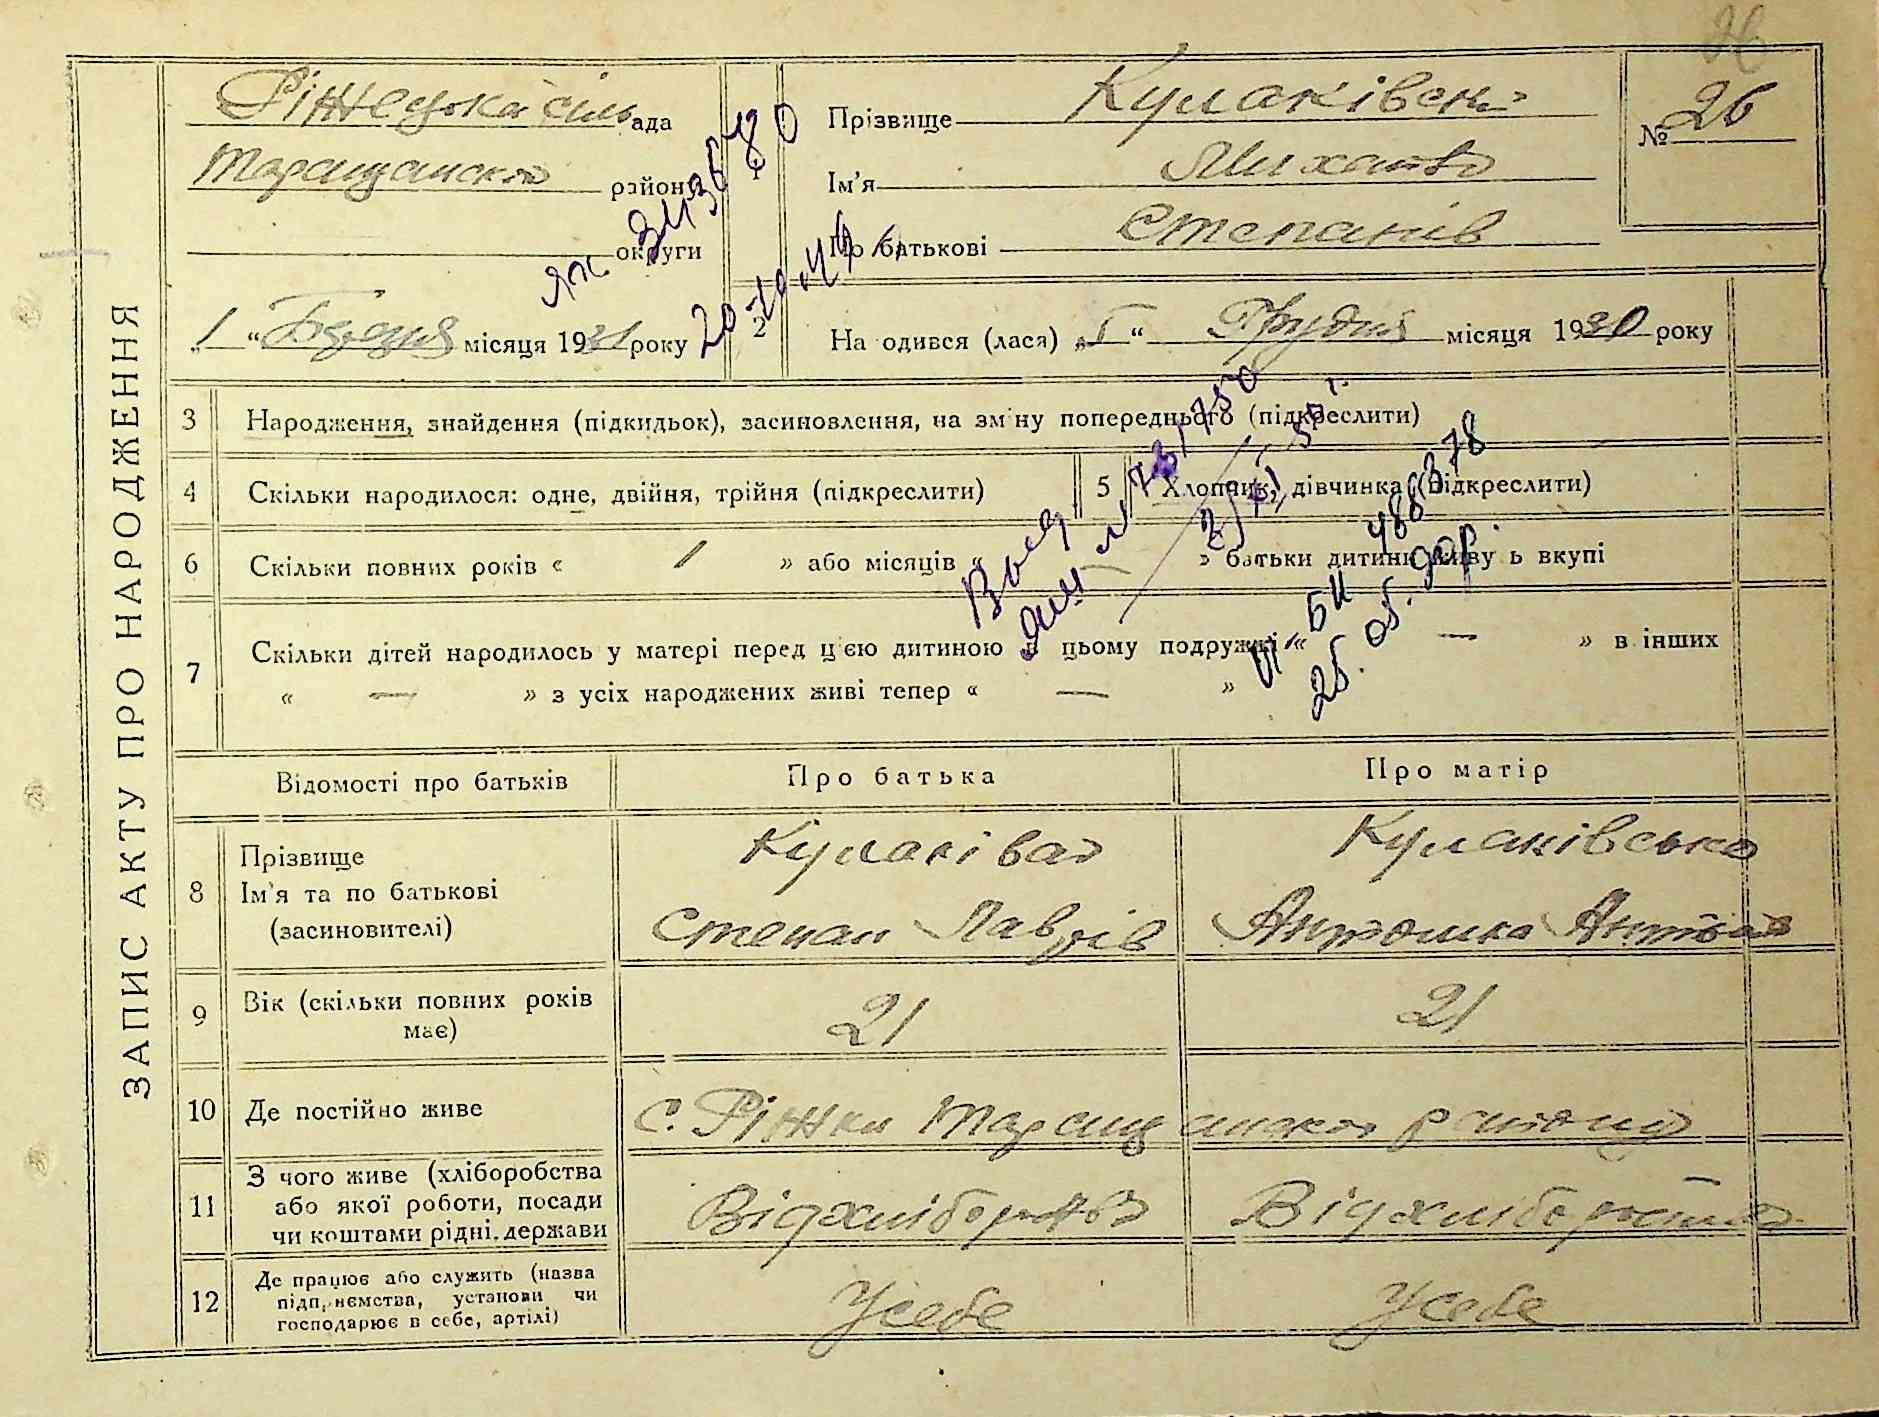 ЗАПИС АКТУ ПРО НАРОДЖЕННЯ
26
Ріжецька сільрада
Таращанского району
округи
"1" Березня місяця 1931 року
1
Прізвище Кулаківський
Ім'я Михайло
По батькові Степанів
№ 26
2 На одився (лася) "1" Грудня місяця 1930 року
ЯЖ 343680
20-10-49
3 Народження, знайдення (підкидьок), засиновлення, на зм ну попереднього (підкреслити)
4 Скільки народилося: одне, двійня, трійня (підкреслити)
5 Хлопчик, дівчинка (підкреслити)
6 Скільки повних років « 1 » або місяців « — » батьки дитини живу ь вкупі
7 Скільки дітей народилось у матері перед цією дитиною в цьому подружжі « — » в інших
« — » з усіх народжених живі тепер « — »
VI БК 4883378
Відомості про батьків
Про батька
Про матір
8 Прізвище
Ім'я та по батькові
(засиновителі)
Степан Лаврів
Кулаківська
9 Вік (скільки повних років має)
21
21
10 Де постійно живе
с. Ріжки Таращанского району
11 З чого живе (хліборобства
або якої роботи, посади
чи коштами рідні. держави
Від хліборобства
Від хліборобства
12 Де працює або служить (назва
підп, иємства, установи чи
господарює в себе, артілі)
У себе
У себе